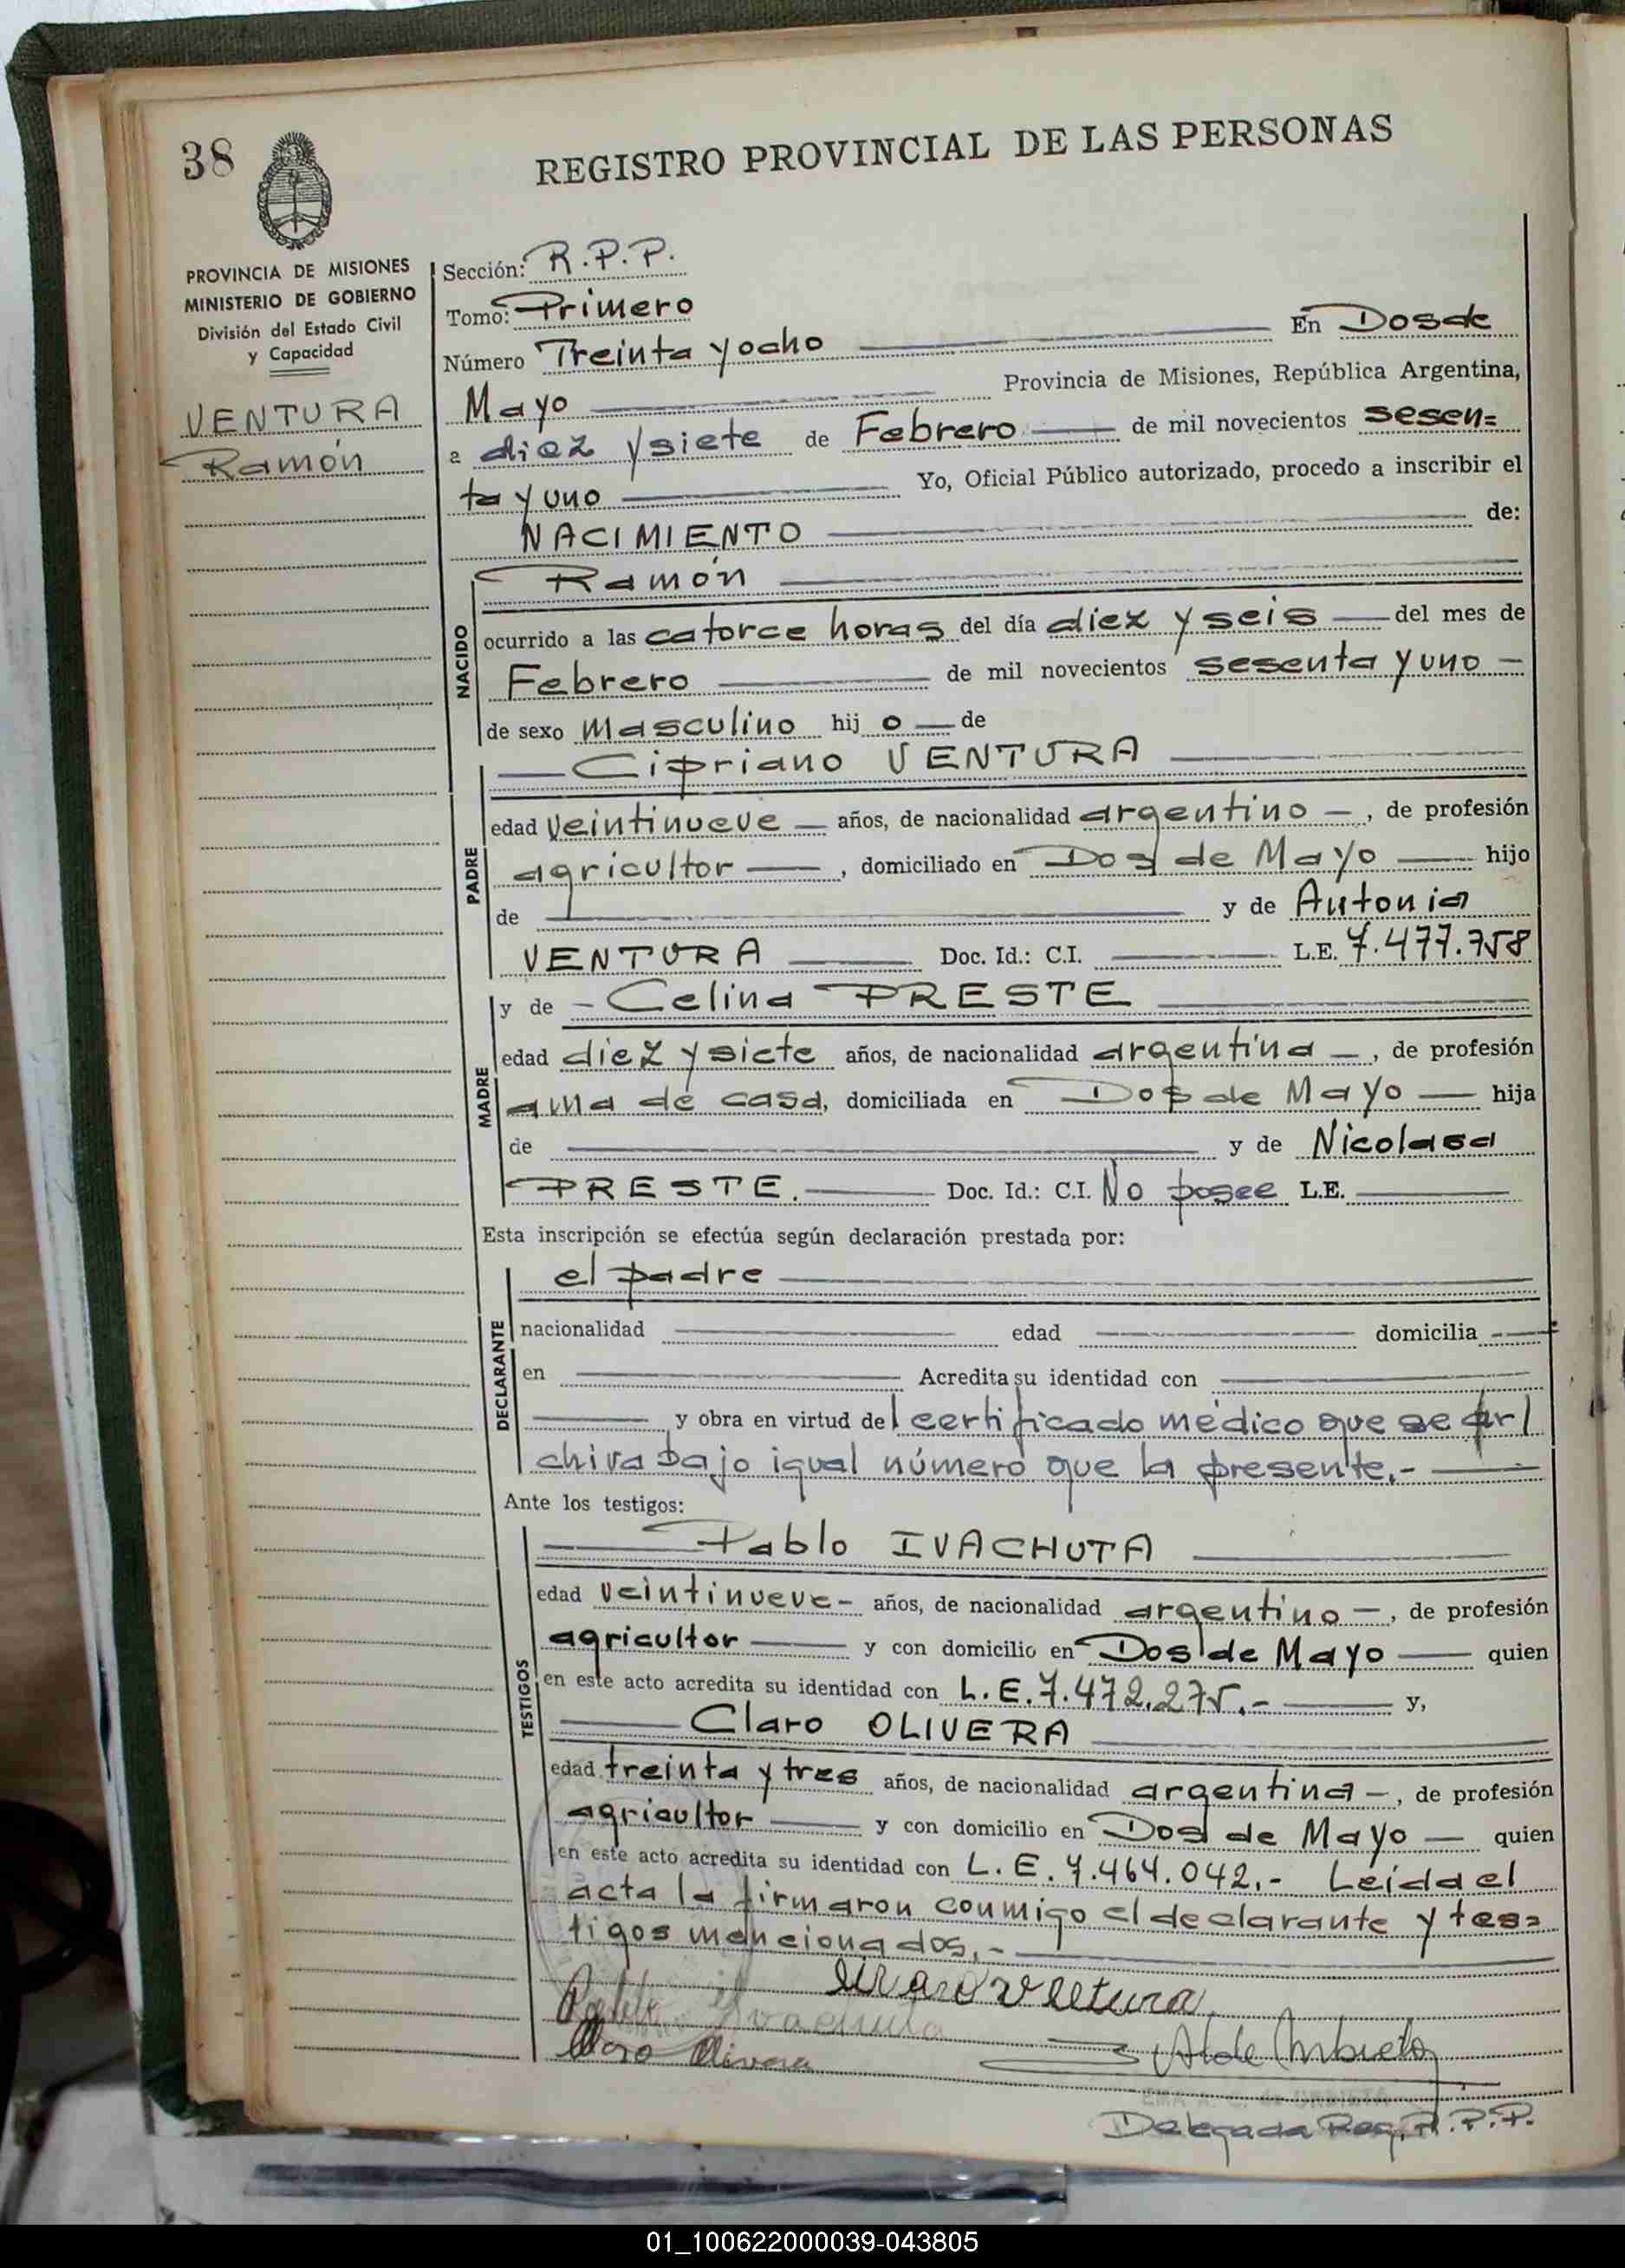 38
REGISTRO PROVINCIAL DE LAS PERSONAS
PROVINCIA DE MISIONES
MINISTERIO DE GOBIERNO
División del Estado Civil
y Capacidad
VENTURA
Ramón
Sección: R.P.P.
Tomo: Primero
Número Treinta y ocho En Dos de
Mayo Provincia de Misiones, República Argentina,
a diez y siete de Febrero de mil novecientos sesen=
ta y uno Yo, Oficial Público autorizado, procedo a inscribir el
NACIMIENTO de:
NACIDO
Ramón
ocurrido a las catorce horas del día diez y seis del mes de
Febrero de mil novecientos sesenta y uno
de sexo masculino hij o de
PADRE
Cipriano VENTURA
edad veintinueve años, de nacionalidad argentino, de profesión
agricultor, domiciliado en Dos de Mayo hijo
de y de Antonia
VENTURA Doc. Id.: C.I. L.E. 7.477.758
MADRE
y de Celina PRESTE
edad diez y siete años, de nacionalidad argentina, de profesión
ama de casa, domiciliada en Dos de Mayo hija
de y de Nicolasa
PRESTE. Doc. Id.: C.I. No posee L.E.
Esta inscripción se efectúa según declaración prestada por:
DECLARANTE
el padre
nacionalidad edad domicilia
en Acredita su identidad con
y obra en virtud del certificado médico que se ar/
chiva bajo igual número que la presente.-
Ante los testigos:
TESTIGOS
Pablo IVACHUTA
edad veintinueve- años, de nacionalidad argentino, de profesión
agricultor y con domicilio en Dos de Mayo quien
en este acto acredita su identidad con L.E. 7.472.275.- y,
Claro OLIVERA
edad treinta y tres años, de nacionalidad argentina, de profesión
agricultor y con domicilio en Dos de Mayo quien
en este acto acredita su identidad con L.E. 7.464.042.- Leída el
acta la firmaron conmigo el declarante y tes=
tigos mencionados.-
Ventura
Pablo Ivachuta
Claro Olivera
Delegada Reg. R.P.P.
01_100622000039-043805